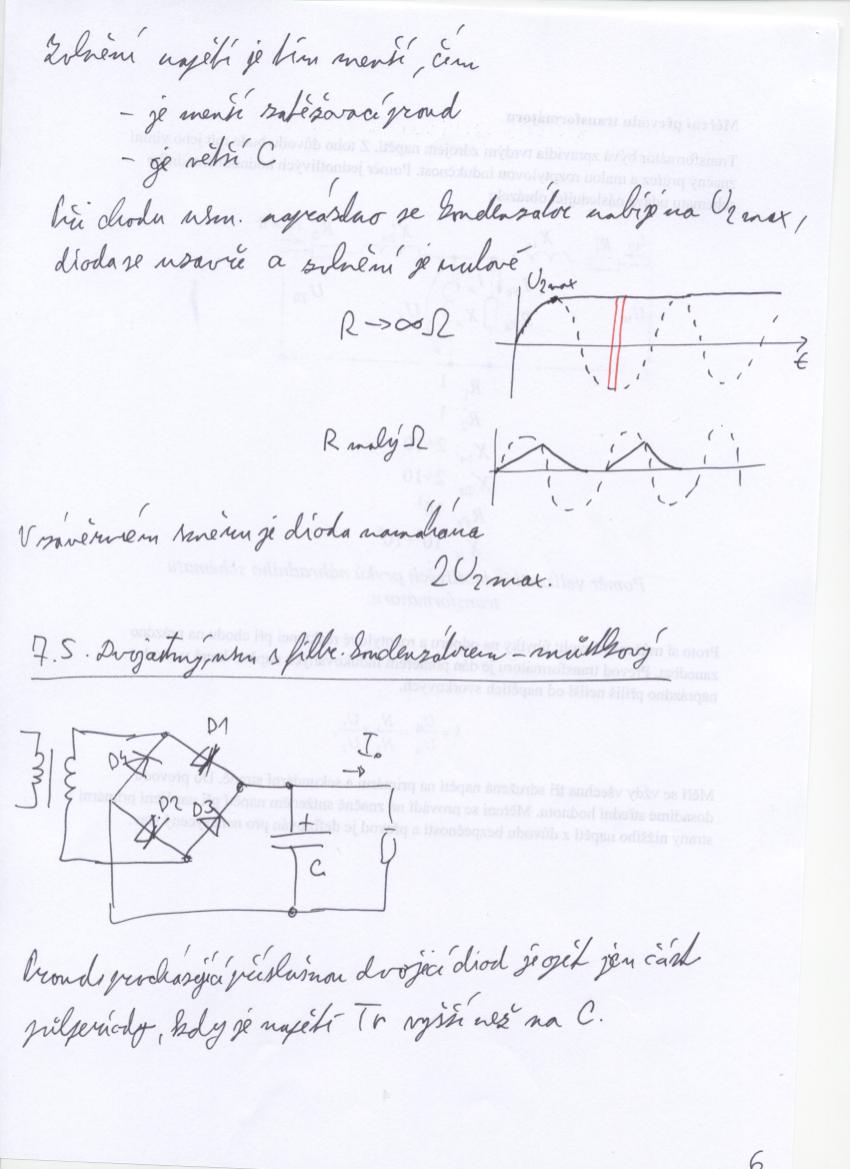 Zvlnění napětí je tím menší, čím
- je menší zatěžovací proud
- je větší C
Při chodu usm. naprázdno se kondenzátor nabije na U2max,
dioda se uzavře a zvlnění je nulové
U2max
R → ∞ Ω
t
R malý Ω
V závěrném směru je dioda namáhána
2U2max.
7.5. Dvojcestný usm s filtr. kondenzátorem - můstkový
D1
D4
I0
D2 D3
+
C
Proud procházející příslušnou dvojicí diod je opět jen část
půlperiody, kdy je napětí Tr vyšší než na C.
6